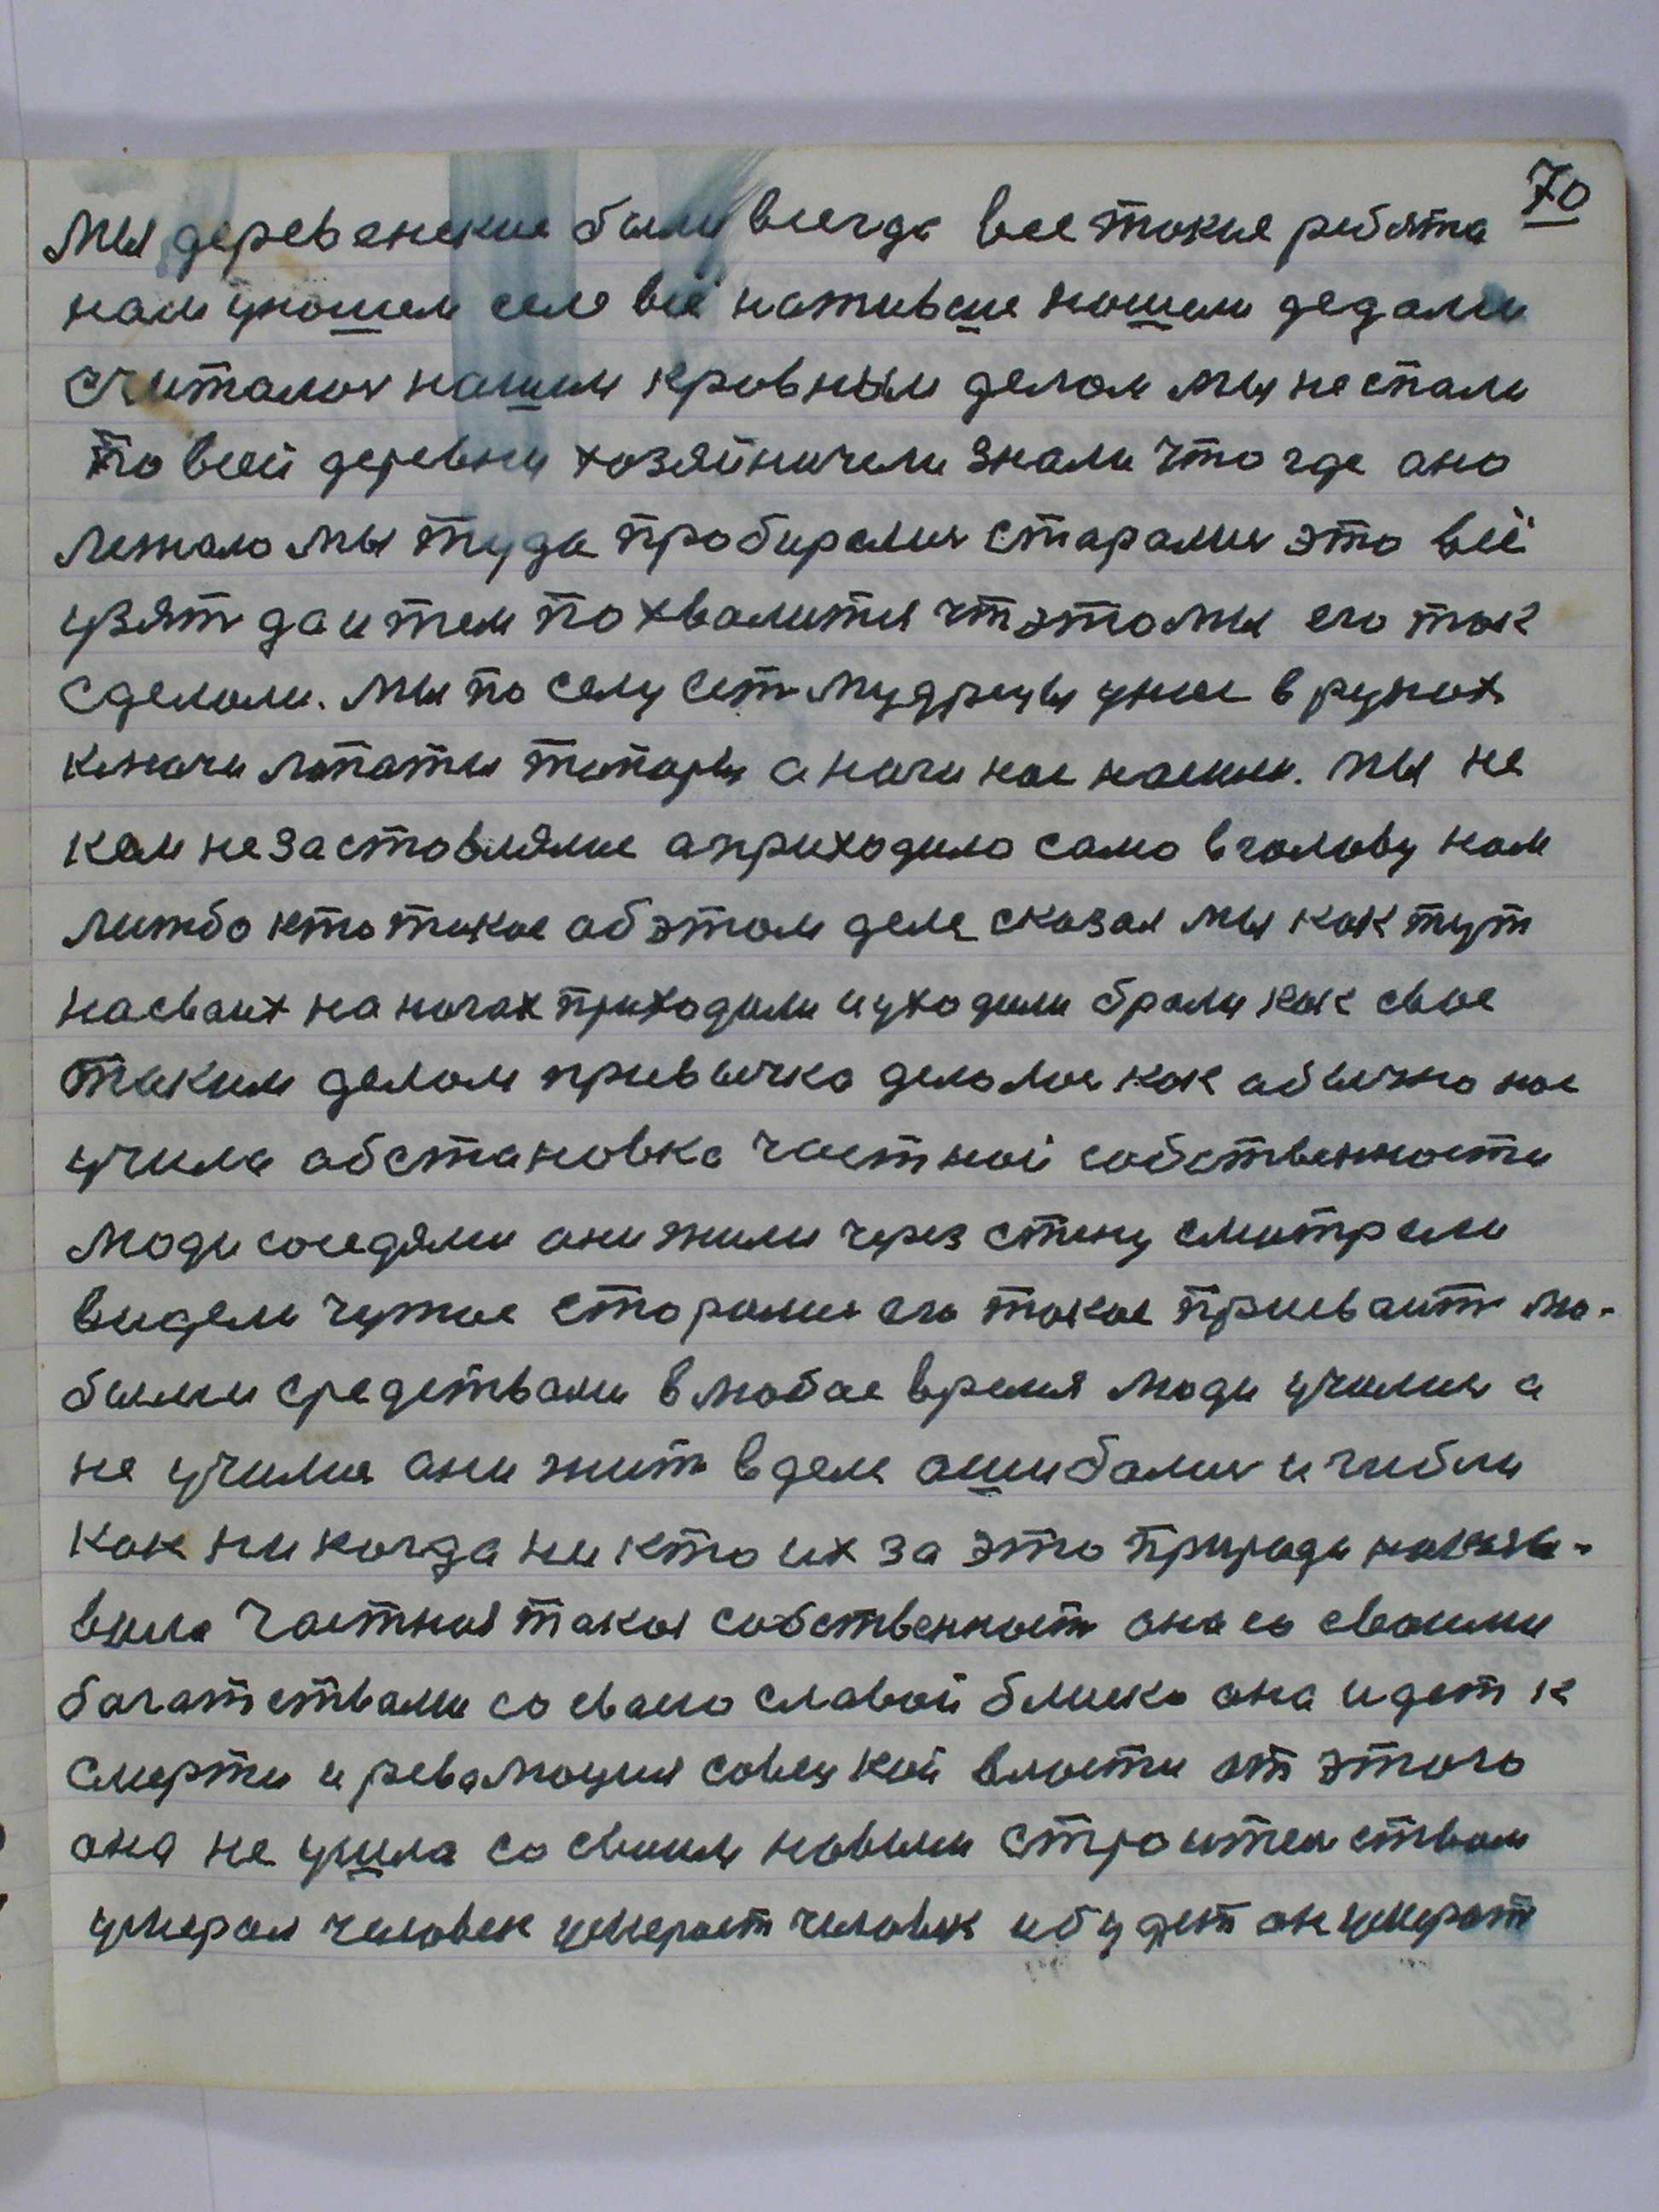 70
мы деревенские были всегда все такие ребята
нам унашем селе всё нажившие нашем дедами
считалос нашим кровным делом мы не спали
по всей деревни хозяйничели знали что где ано
лежало мы туда пробиралис старалис это всё
узят да и тем похвалится чт это мы его так
сделали. мы по селу ест мудрецы унас в руках
ключи лапаты тапары а ночи нас наши. мы не
кем не заставлялис априходило само вголову нам
либо кто такое аб этом деле сказал мы как тут
на сваих на ногах приходили и уходили брали как свое
таким делом привычка делолос как абычно нас
учила абстановка частной собственности
люди соседями ани жили через стену сматрели
видели чужое старалис его такое присваит лю-
быми средствами влюбое время люди училис а
не училис ани жит вделе ашибалис и гибли
как никогда никто их за это природи
была частная такая собственност ана со сваими
багатствами со сваею славой близко ана идет к
смерти и революция совецкой власти от этого
ана не ушла со сваим новым строителством
умерал человек умерает человек и будет он умерат